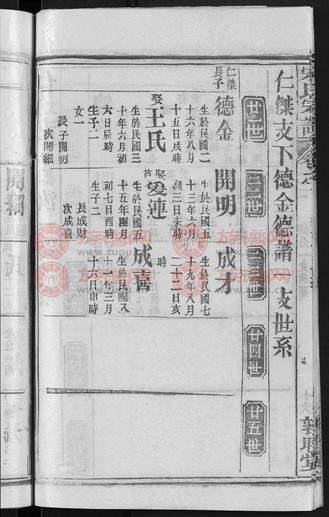 仁傑支下德金德譜支世系
廿一世
廿二世
廿三世
廿四世
廿五世
仁傑長子
德金
生於民國二十六年八月十五日戌時
娶王氏
生於民國三十年六月初六日辰時
生子二
女一
長子開明
次開細
開明
生於民國五十三年六月初三日未時
娶
愛蓮
生於民國五十五年閏月初七日酉時
生子二
長成財
次成喜
成才
生於民國七十九年八月二十二日亥時
成喜
生於民國八十一年三月十六日申時
開細
族譜網